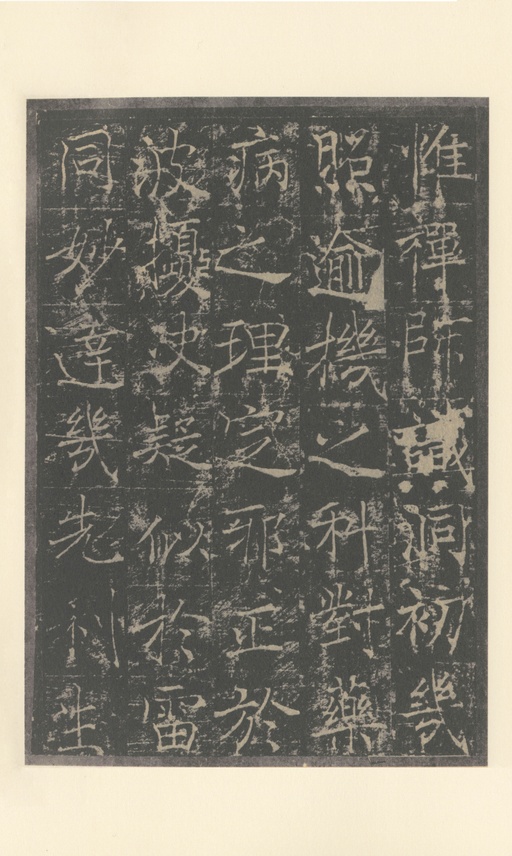 惟禪師識洞初幾
照逾機之科對藥
病之理定邪正於
波櫇决疑似於雷
同妙達幾先利生